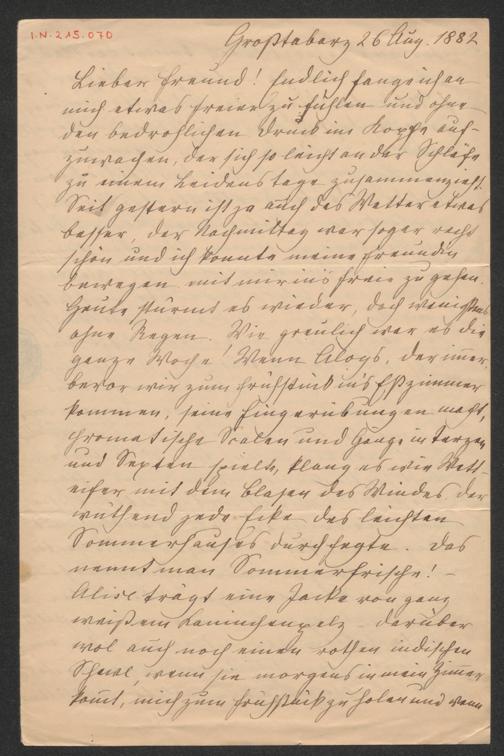 I.N. 215.070
Großtabarz 26 Aug. 1882
Lieber Freund! Endlich fange ich an
mich etwas freier zu fühlen und ohne
den bedrohlichen Druck im Kopfe auf-
zuwachen, der sich so leicht an der Schläfe
zu einem Leidenstage zusammenzieht.
Seit gestern ist ja auch das Wetter etwas
besser, der Nachmittag war sogar recht
schön und ich konnte meine Freundin
bewegen mit mir ins Freie zu gehen.
Heute stürmt es wieder, doch wenigstens
ohne Regen. Wie greulich war es die
ganze Woche! Wenn Aloys, der immer,
bevor wir zum Frühstück in's Eßzimmer
kommen, seine Fingerübungen macht,
chromatische Scalen und Gänge in Terzen
und Sexten spielte, klang es wie Wett-
eifer mit dem Blasen des Windes der
wüthend jede Ecke des leichten
Sommerhauses durchfegte. Das
nennt man Sommerfrische! –
Alise trägt eine Jacke von ganz
weißem Kaninchenpelz – darüber
wol auch noch einen rothen indischen
Shawl, wenn sie morgens in mein Zimmer
komt, mich zum Frühstück zu holen und wenn